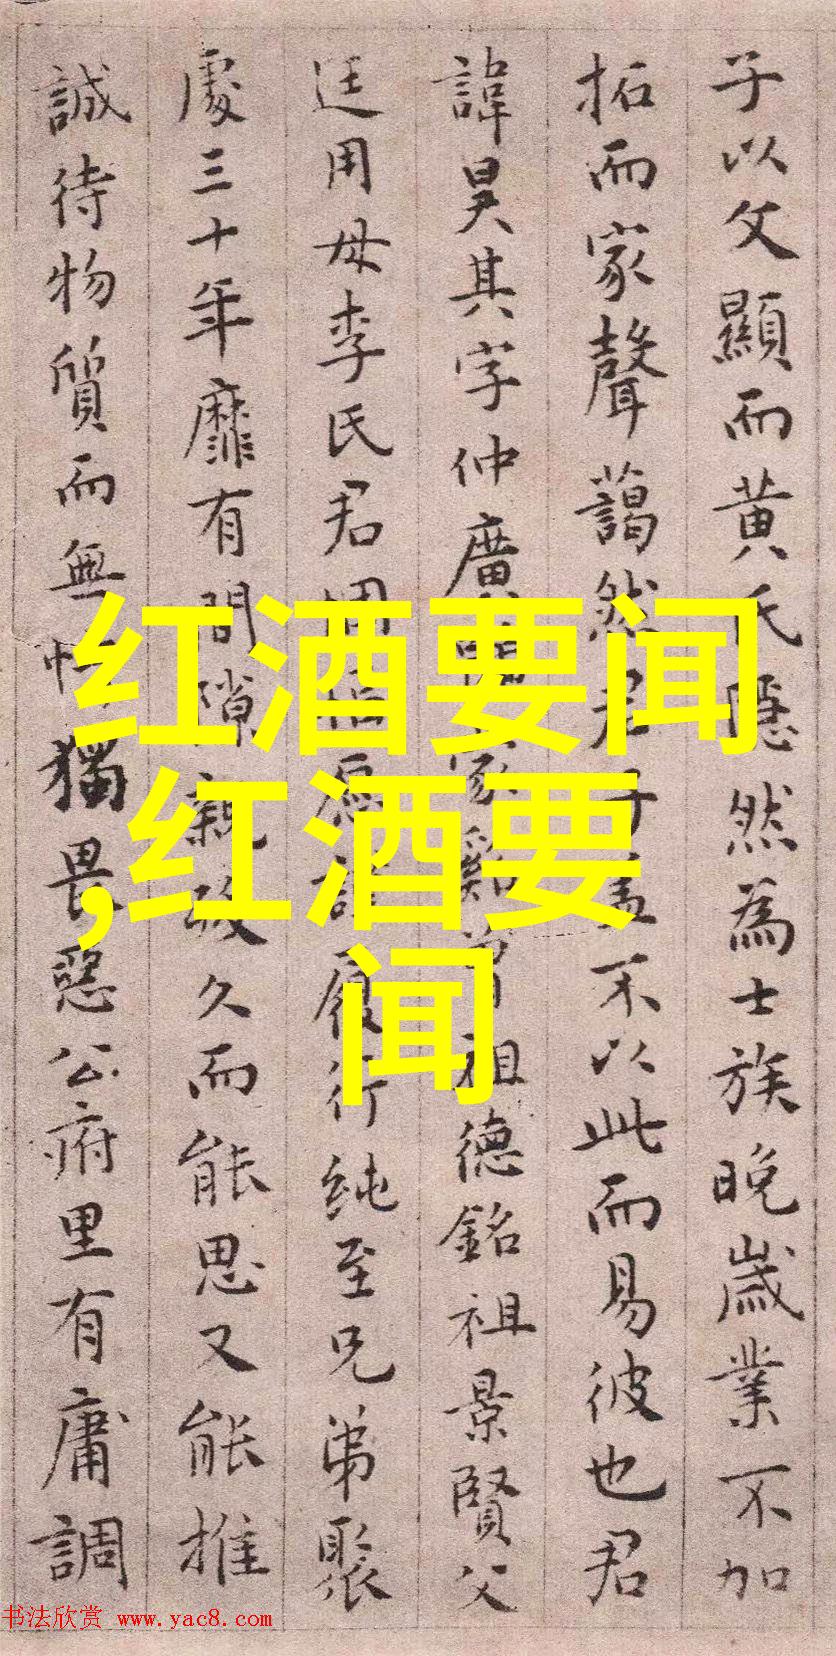 子以父顯而黄氏隱然為士族晚歲業不加
拓而家聲藹然君子盖不以此而易彼也君
諱昊其字仲廣 家 曾祖德銘祖景賢父
廷用母李氏君 履行纯至兄弟聚
處三十年靡有間隙親 久而能思又能推
誠待物質而無 獨畏惡公府里有庸調
红酒要闻
,红酒要
闻
书法欣赏 www.yac8.com